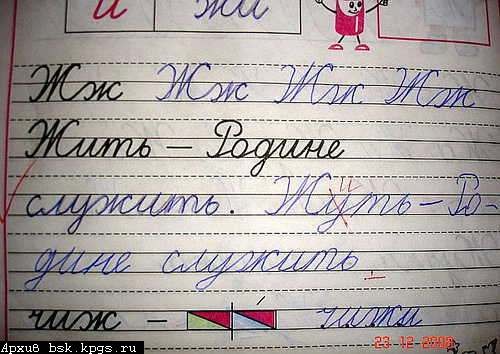 и жи
Жж Жж Жж Жж
Жить – Родине
служить. Жуть – Ро-
и
дине служить.
чиж – чижи
Архив bsk.kpgs.ru